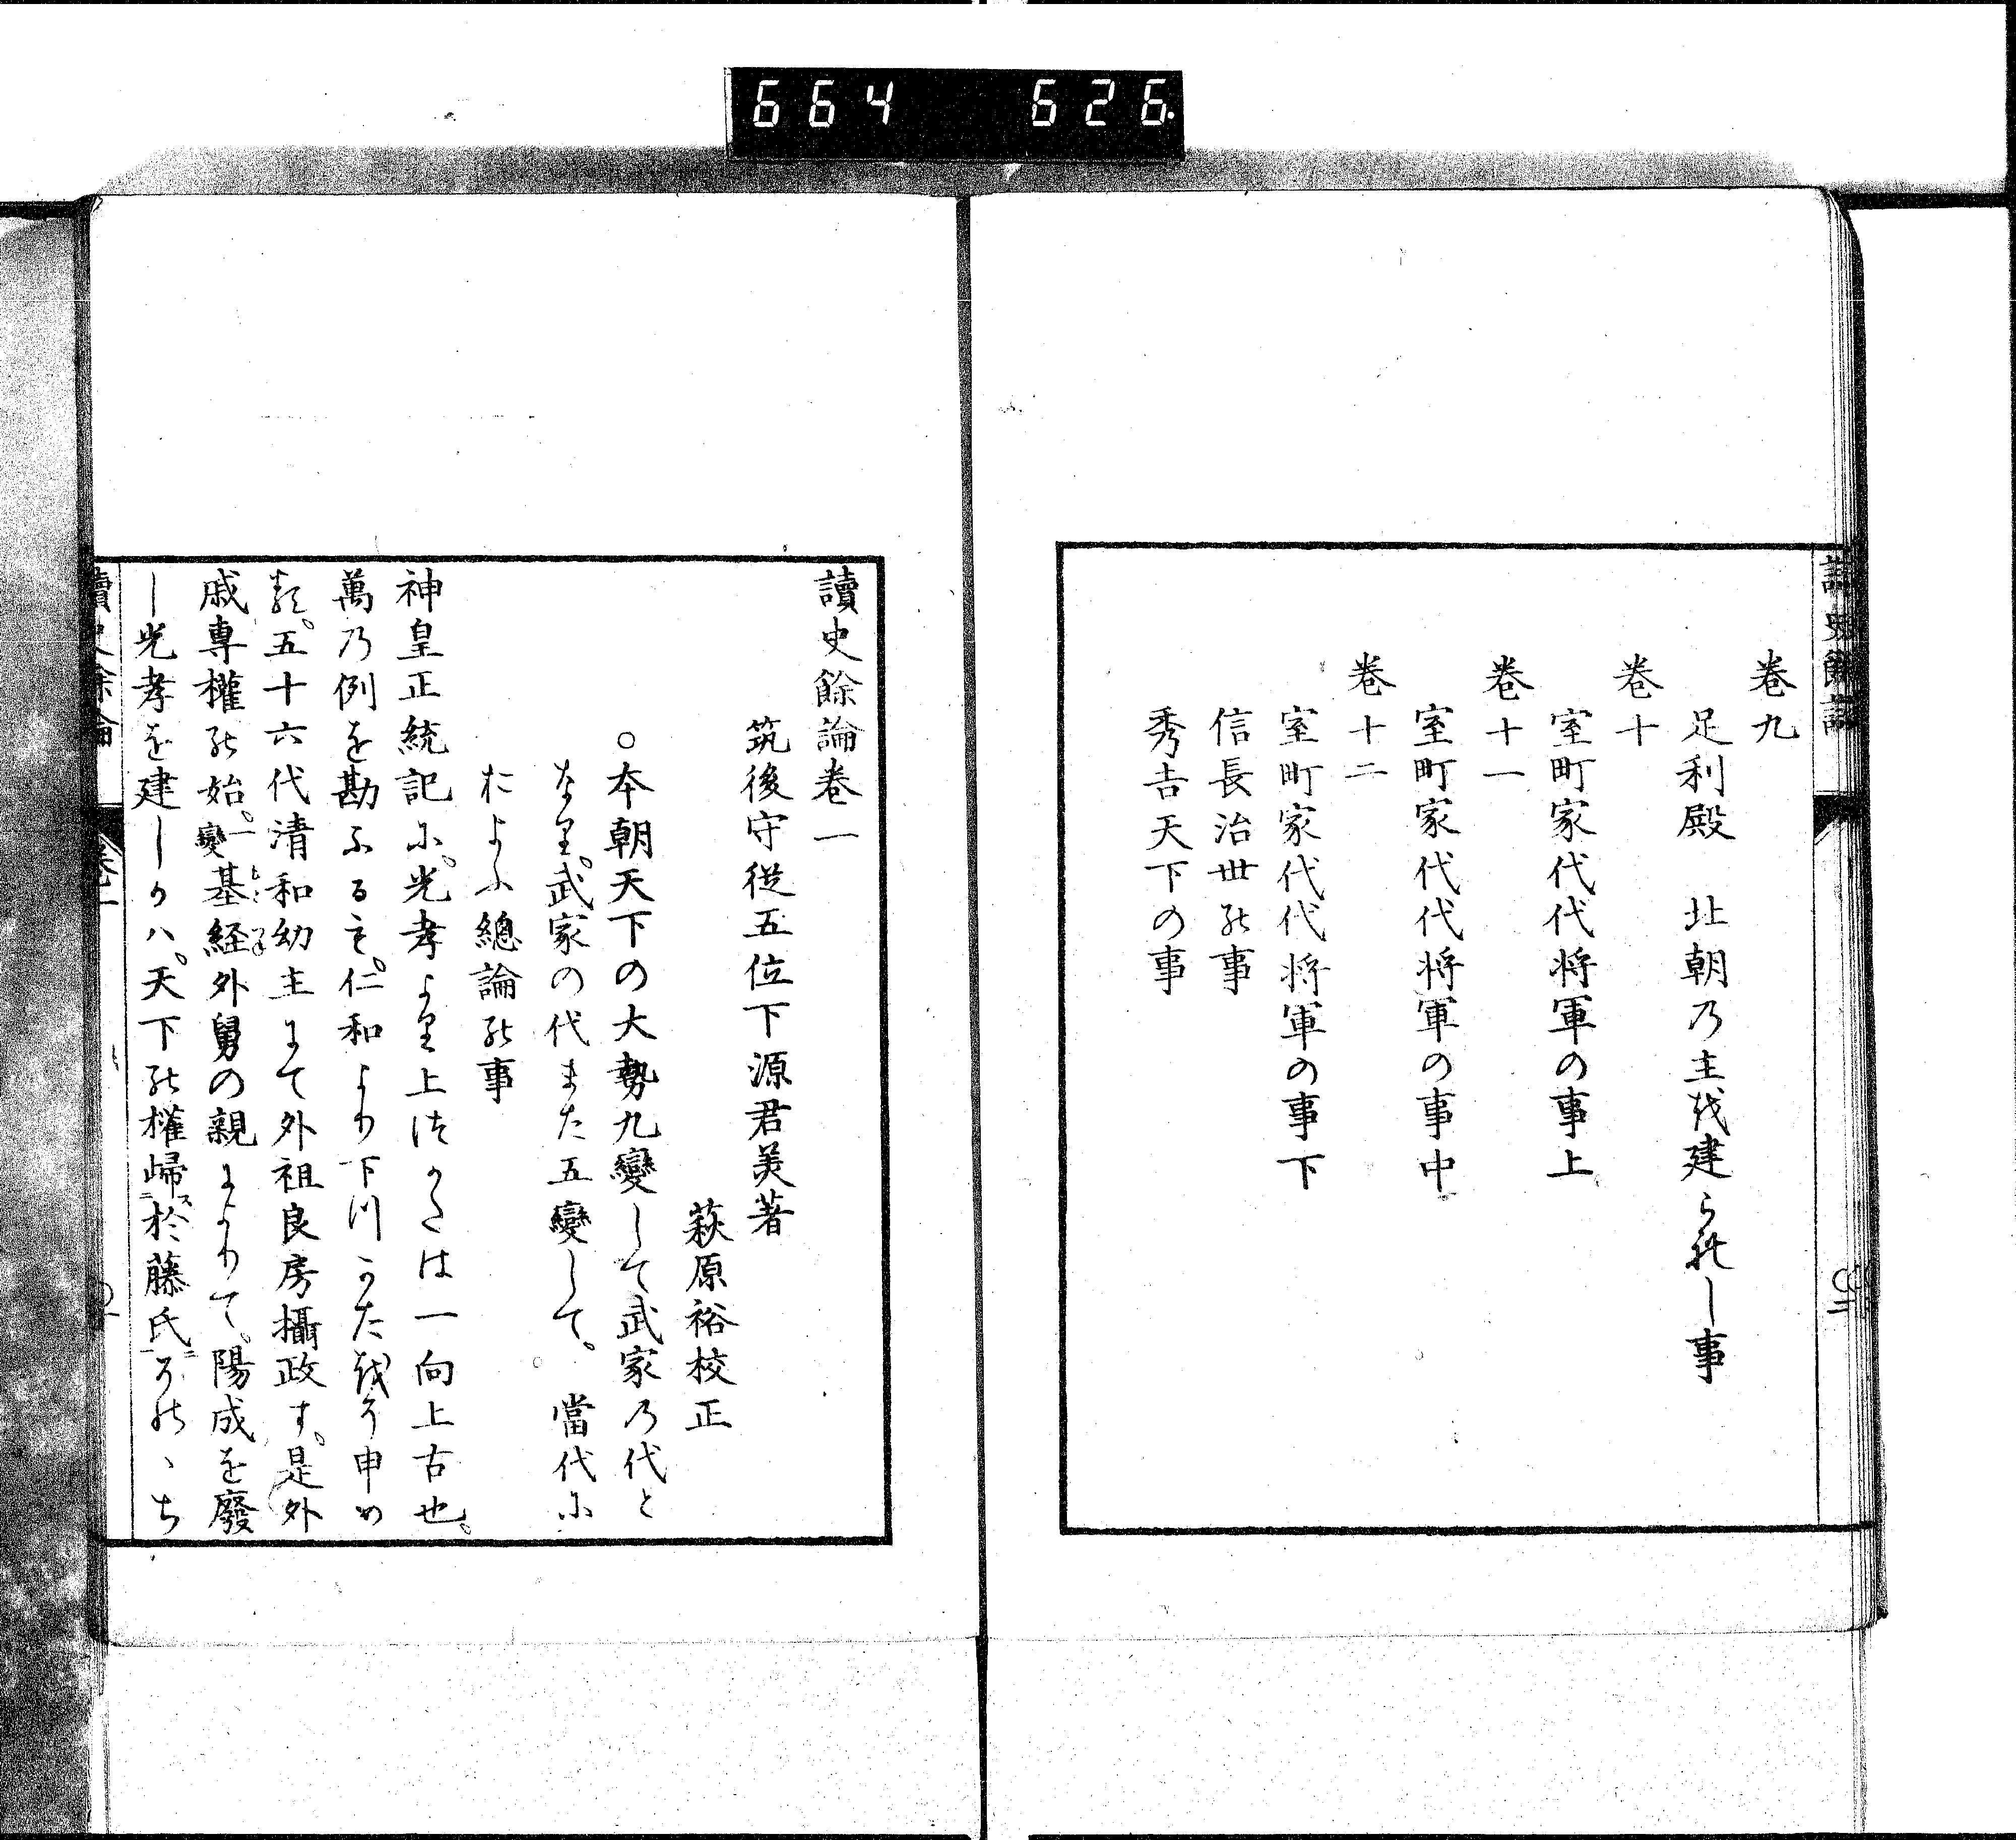 664 626
卷九
足利殿 北朝乃主越建られし事
卷十
室町家代代将軍の事上
卷十一
室町家代代将軍の事中
卷十二
室町家代代将軍の事下
信長治世の事
秀吉天下の事
讀史餘論卷一
筑後守從五位下源君美著
萩原裕校正
○本朝天下の大勢九變して武家乃代と
なり。武家の代また五變して。當代に
およふ總論の事
神皇正統記に。光孝より上つかたは一向上古也。
萬乃例を勘ふるも。仁和より下つかた越そ申め
る。五十六代清和幼主にて外祖良房攝政す。是外
戚専權の始。一變基経もとつね外舅の親によりて。陽成を廢
し光孝を建しかハ。天下の權歸ス於藤氏ニそのゝち
讀史餘論 卷一